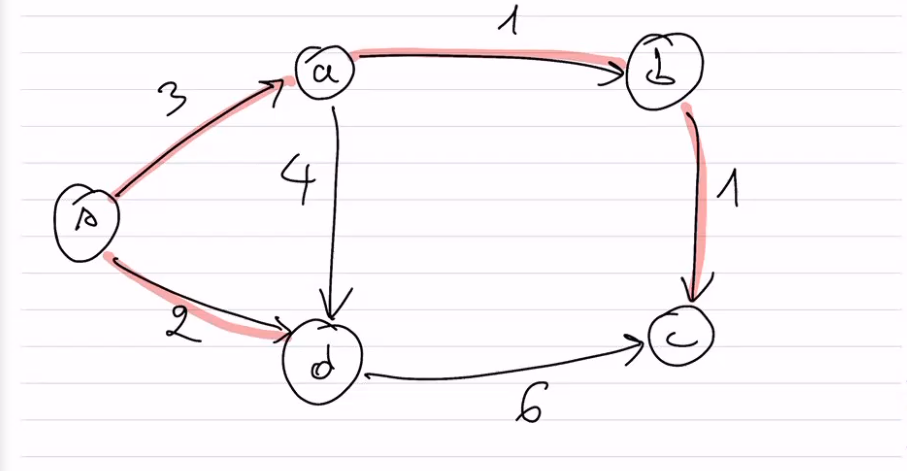 1
a
b
3
4
1
s
2
d
c
6